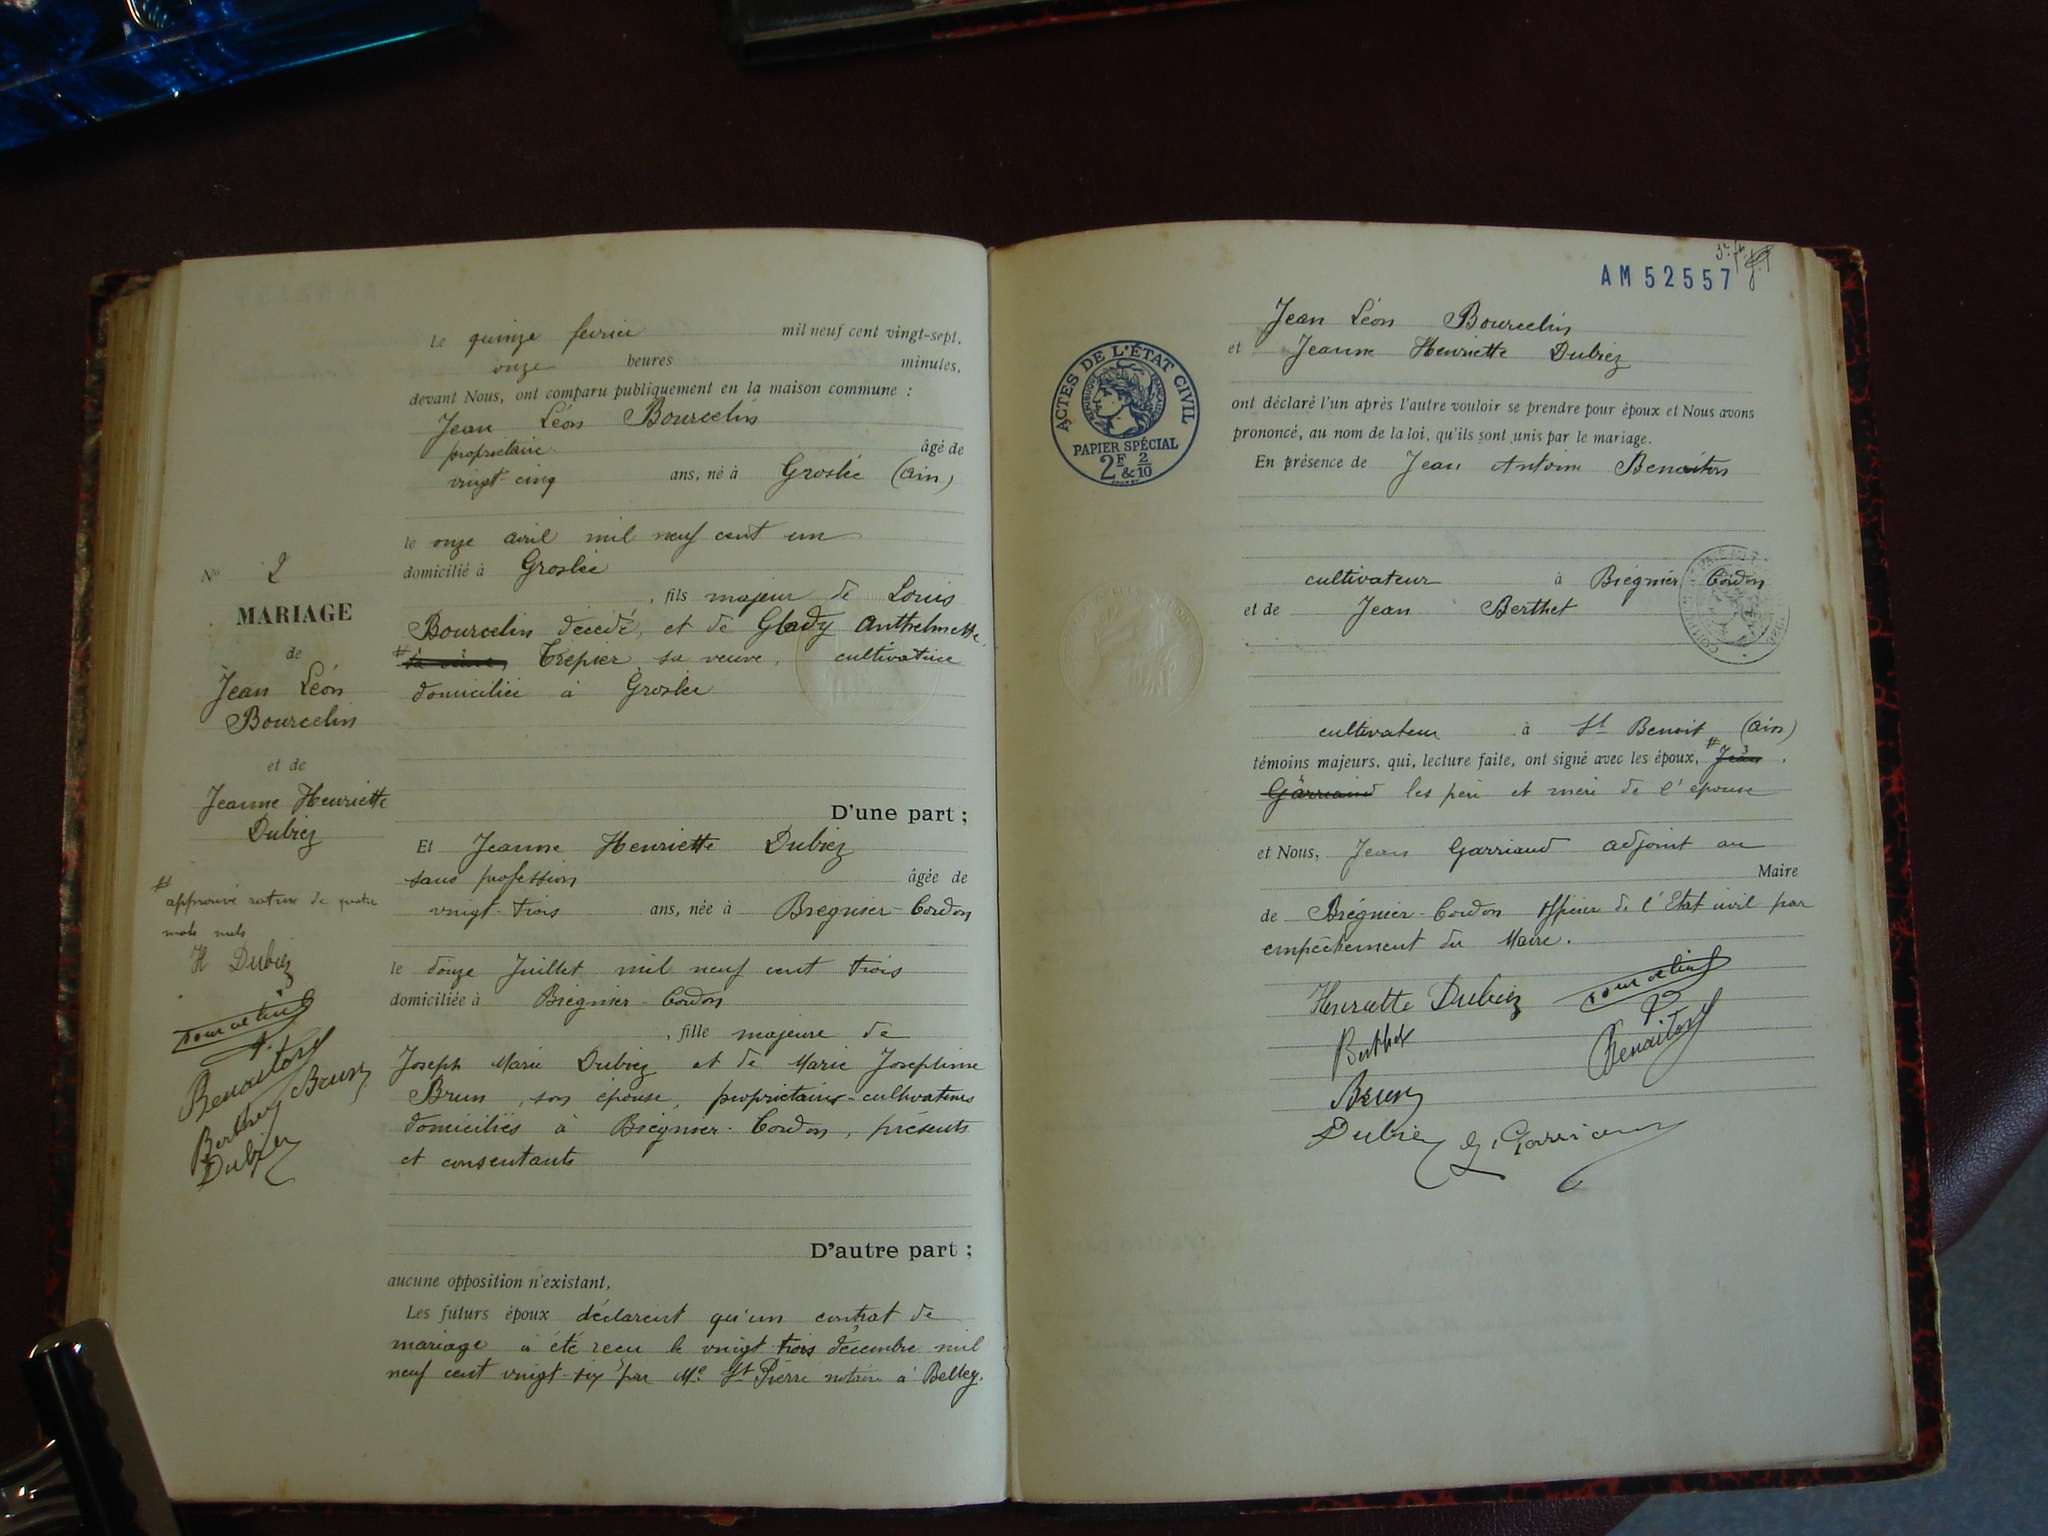 Le quinze fevrier mil neuf cent vingt-sept,
onze heures minutes,
devant Nous, ont comparu publiquement en la maison commune :
Jean Léon Bourcelin
propriétaire âgé de
vingt-cinq ans, né à Groslée (Ain)
le onze avril mil neuf cent un
domicilié à Groslée
, fils majeur de Louis
Bourcelin décédé, et de Glady Anthelmette
# Trepier sa veuve, cultivatrice
domiciliée à Groslée
D'une part ;
Et Jeanne Henriette Dubiez
sans profession âgée de
vingt-trois ans, née à Bregnier-Cordon
le douze Juillet mil neuf cent trois
domiciliée à Brégnier-Cordon
, fille majeure de
Joseph Marie Dubiez et de Marie Josephine
Brun, son épouse, propriétaires-cultivateurs
domiciliés à Brégnier-Cordon, présents
et consentants
D'autre part ;
aucune opposition n'existant,
Les futurs époux déclarent qu'un contrat de
mariage a été recu le vingt trois décembre mil
neuf cent vingt-six par Me St Pierre notaire à Belley.
N° 2
MARIAGE
de
Jean Léon
Bourcelin
et de
Jeanne Henriette
Dubiez
# approuvé rature de quatre
mots nuls
H Dubiez
Bourcelin
Benoiton
Brun
Berthet
Dubiez
AM 52557
ACTES DE L'ÉTAT CIVIL
RÉPUBLIQUE FRANÇAISE
PAPIER SPÉCIAL
2F & 2/10
Jean Léon Bourcelin
et Jeanne Henriette Dubiez
ont déclaré l'un après l'autre vouloir se prendre pour époux et Nous avons
prononcé, au nom de la loi, qu'ils sont unis par le mariage.
En présence de Jean Antoine Benoiton
cultivateur à Brégnier Cordon
et de Jean Berthet
cultivateur à St Benoit (Ain)
témoins majeurs, qui, lecture faite, ont signé avec les époux, # Jean
Garriaud les père et mère de l'épouse
et Nous, Jean Garriaud adjoint au
Maire
de Brégnier-Cordon officier de l'Etat civil par
empêchement du Maire.
Henriette Dubiez Bourcelin
Berthet Benoiton
Brun
Dubiez J. Garriaud